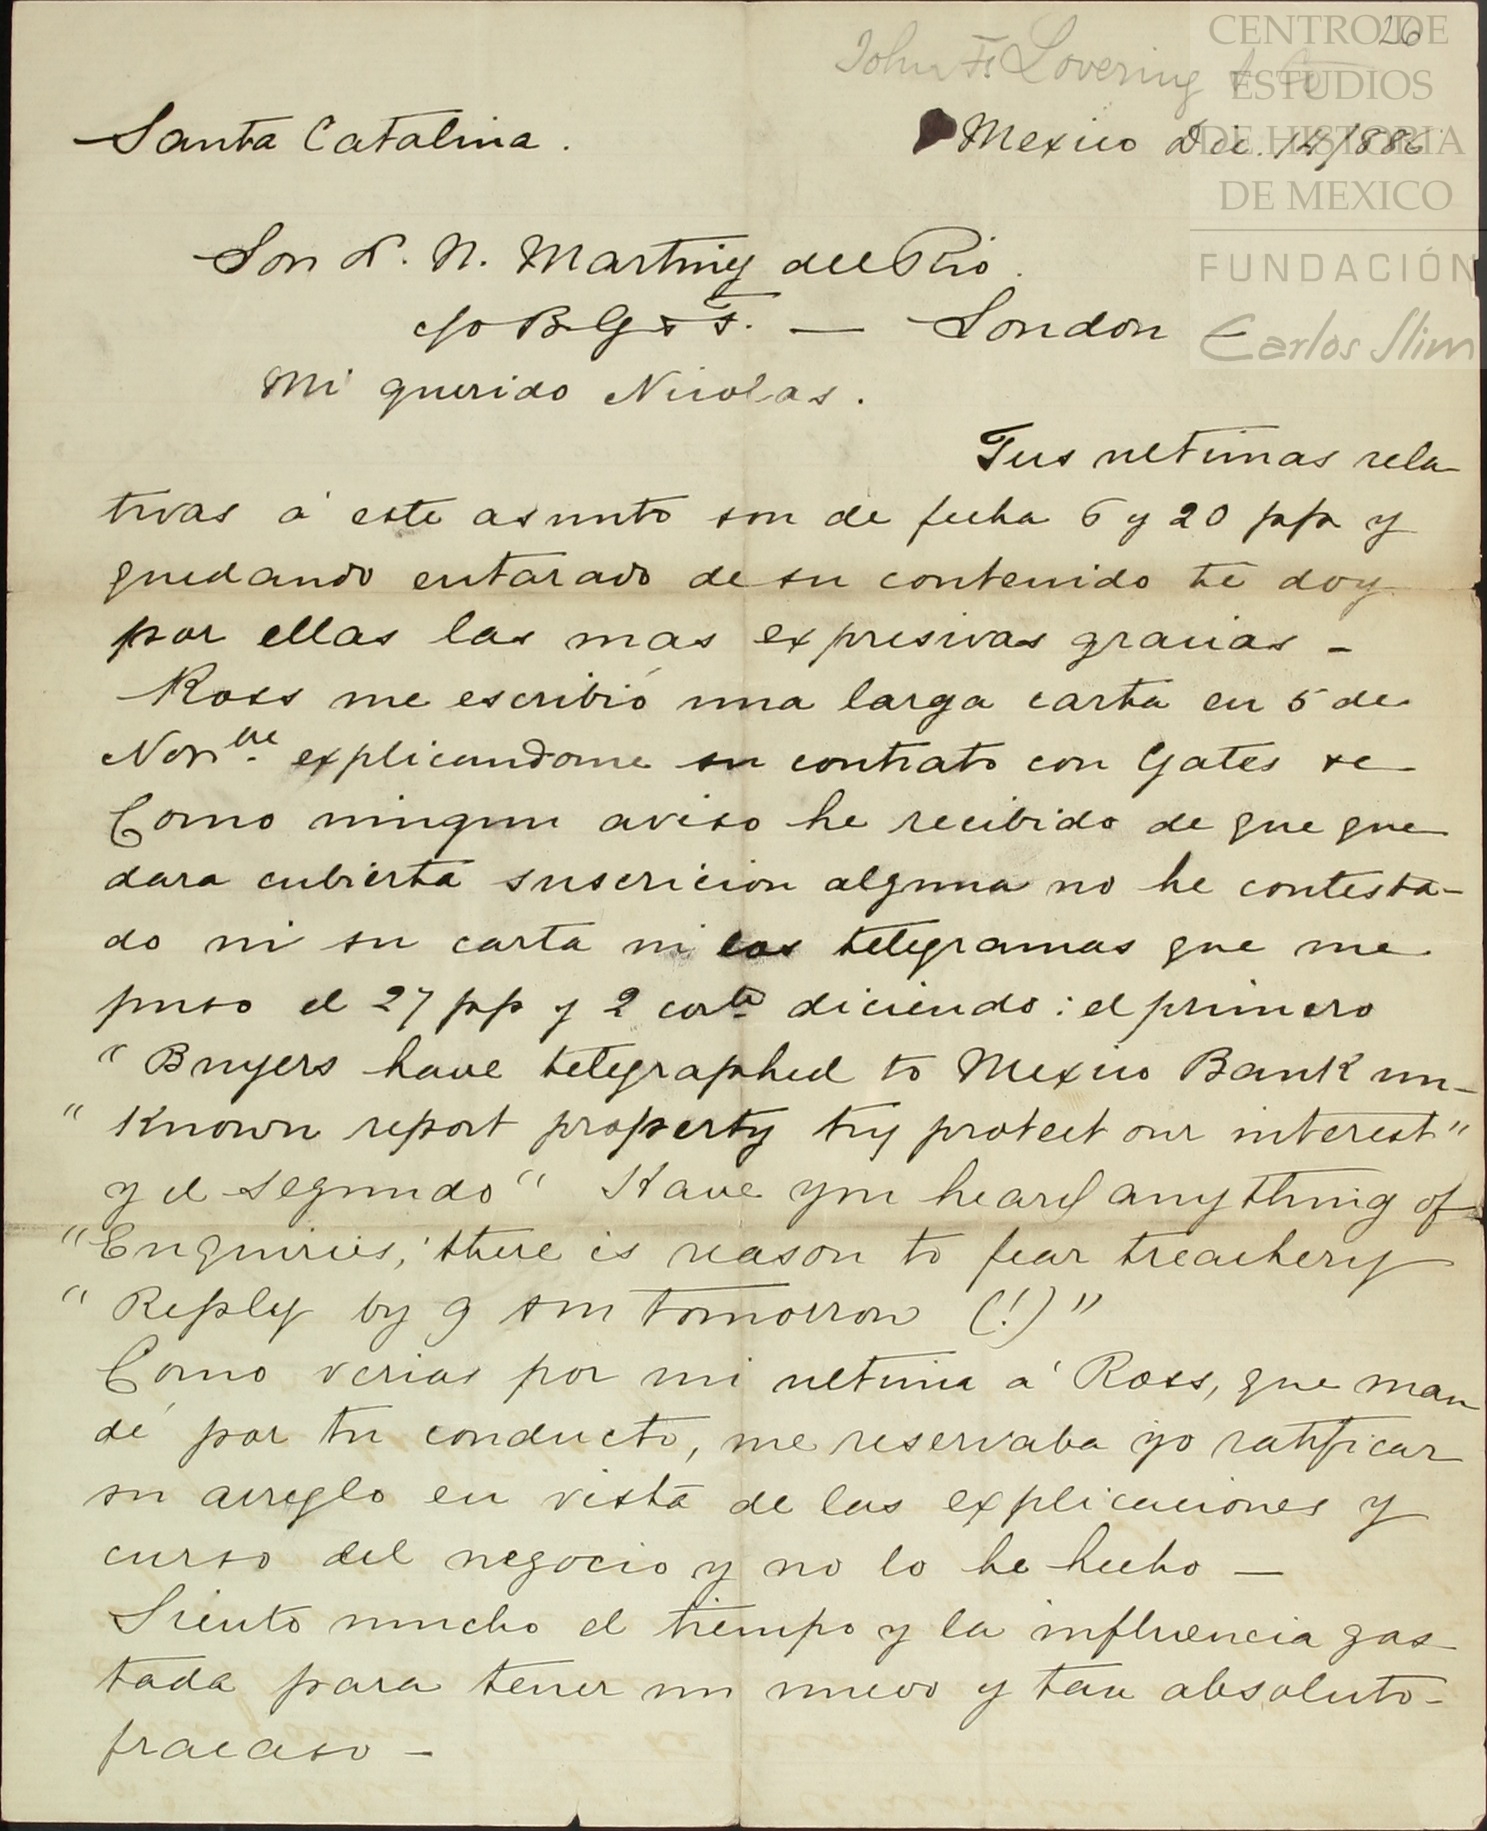 26
John F. Lovering & Co
CENTRO DE
ESTUDIOS
DE HISTORIA
DE MEXICO
FUNDACIÓN
Carlos Slim
Santa Catalina.
Mexico Dic. 14/886
Son P. N. Martinz del Rio.
c/o B G & F. — London
Mi querido Nicolas.
Tus ultimas rela-
tivas á este asunto son de fecha 6 y 20 ppo y
quedando entarado de su contenido te doy
por ellas las mas expresivas gracias –
Ross me escribió una larga carta en 5 de
Novbre explicandome su contrato con Gates &c
Como ningun aviso he recibido de que que
dara cubierta suscricion alguna no he contesta-
do ni su carta ni los telegramas que me
puso el 27 pp y 2 corte diciendo: el primero
"Buyers have telegraphed to Mexico Bank un-
"known report property try protect our interest"
y el segundo "Have you heard anything of
"Enquiries, there is reason to fear treachery
"Reply by 9 tomorrow (!)"
Como verias por mi ultima á Ross, que man
dé por tu conducto, me reservaba yo ratificar
su arreglo en vista de las explicaciones y
curso del negocio y no lo he hecho —
Siento mucho el tiempo y la influencia gas-
tada para tener un nuevo y tan absoluto
fracaso –